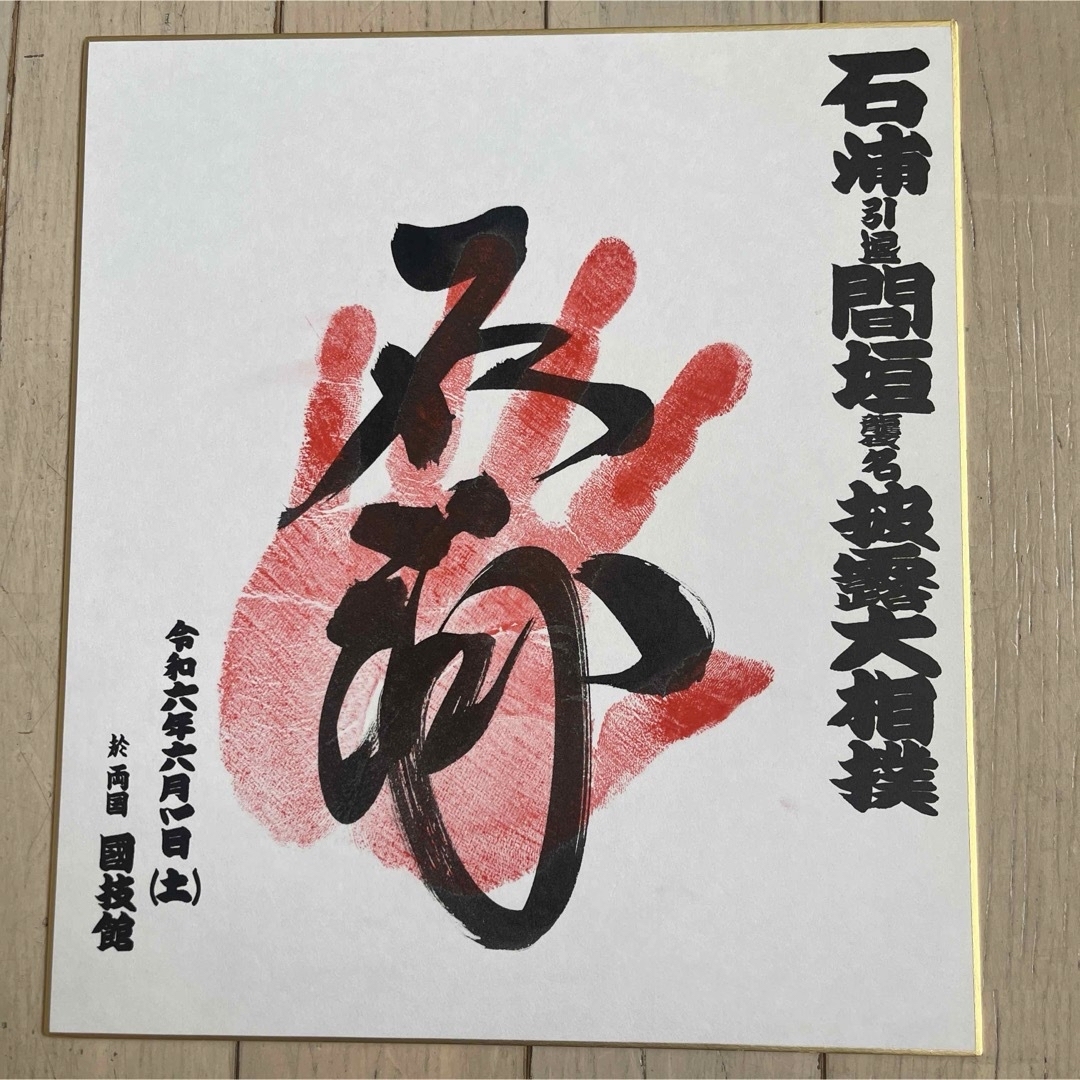 石浦引退間垣襲名披露大相撲
石浦
令和六年六月一日(土)
於両国国技館